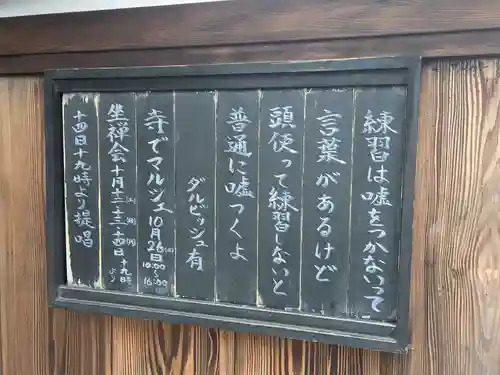 練習は嘘をつかないって
言葉があるけど
頭使って練習しないと
普通に嘘つくよ
ダルビッシュ有
寺でマルシェ 10月26日 10:00〜16:00
坐禅会 十月十二、十三、十四日 十九時より
十四日十九時より提唱